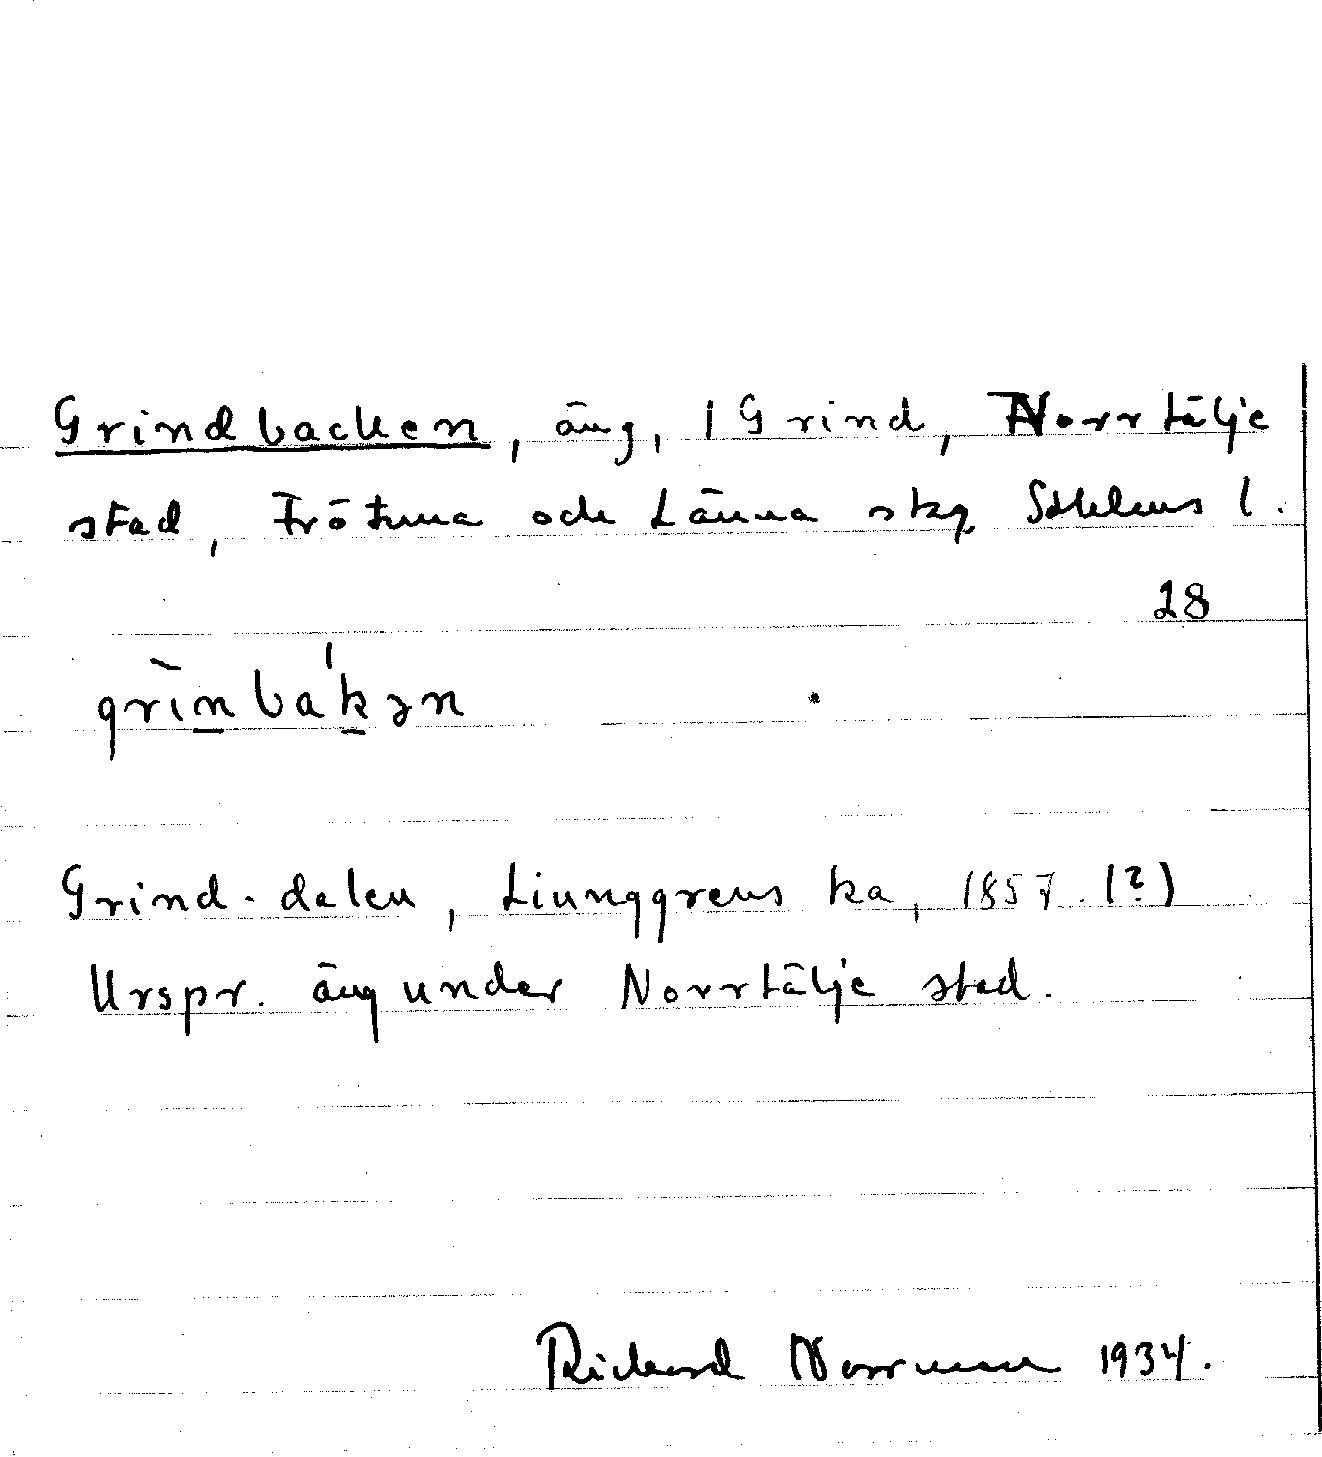 Grindbacken, äng, 1 Grind, Norrtälje
stad, Frötuna och Länna skg Sthlms l.
28
grìnba'kən
Grind-dalen, Liunggrens ka, 1857. (?)
Urspr. äng under Norrtälje stad.
Rickard Norrman 1934.